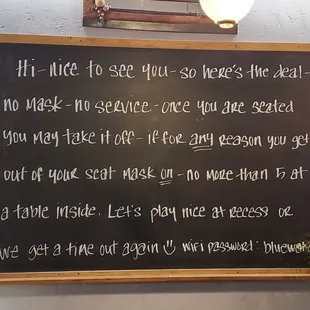 Hi - nice to see you - so here's the deal -
no mask - no service - once you are seated
you may take it off - if for any reason you get
out of your seat mask on - no more than 5 at
a table inside. Let's play nice at recess or
we get a time out again ☺ wifi password: